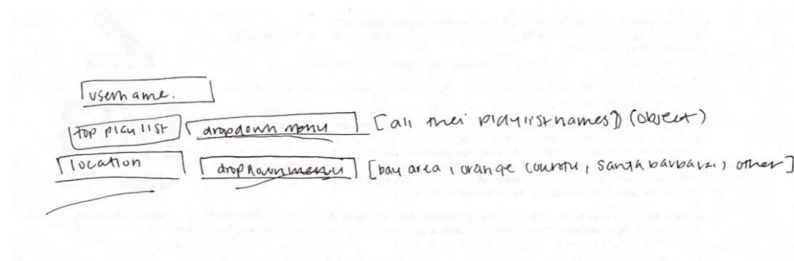 username.
top playlist dropdown menu [all their playlist names] (object)
location dropdown menu [bay area, orange county, santa barbara, other]